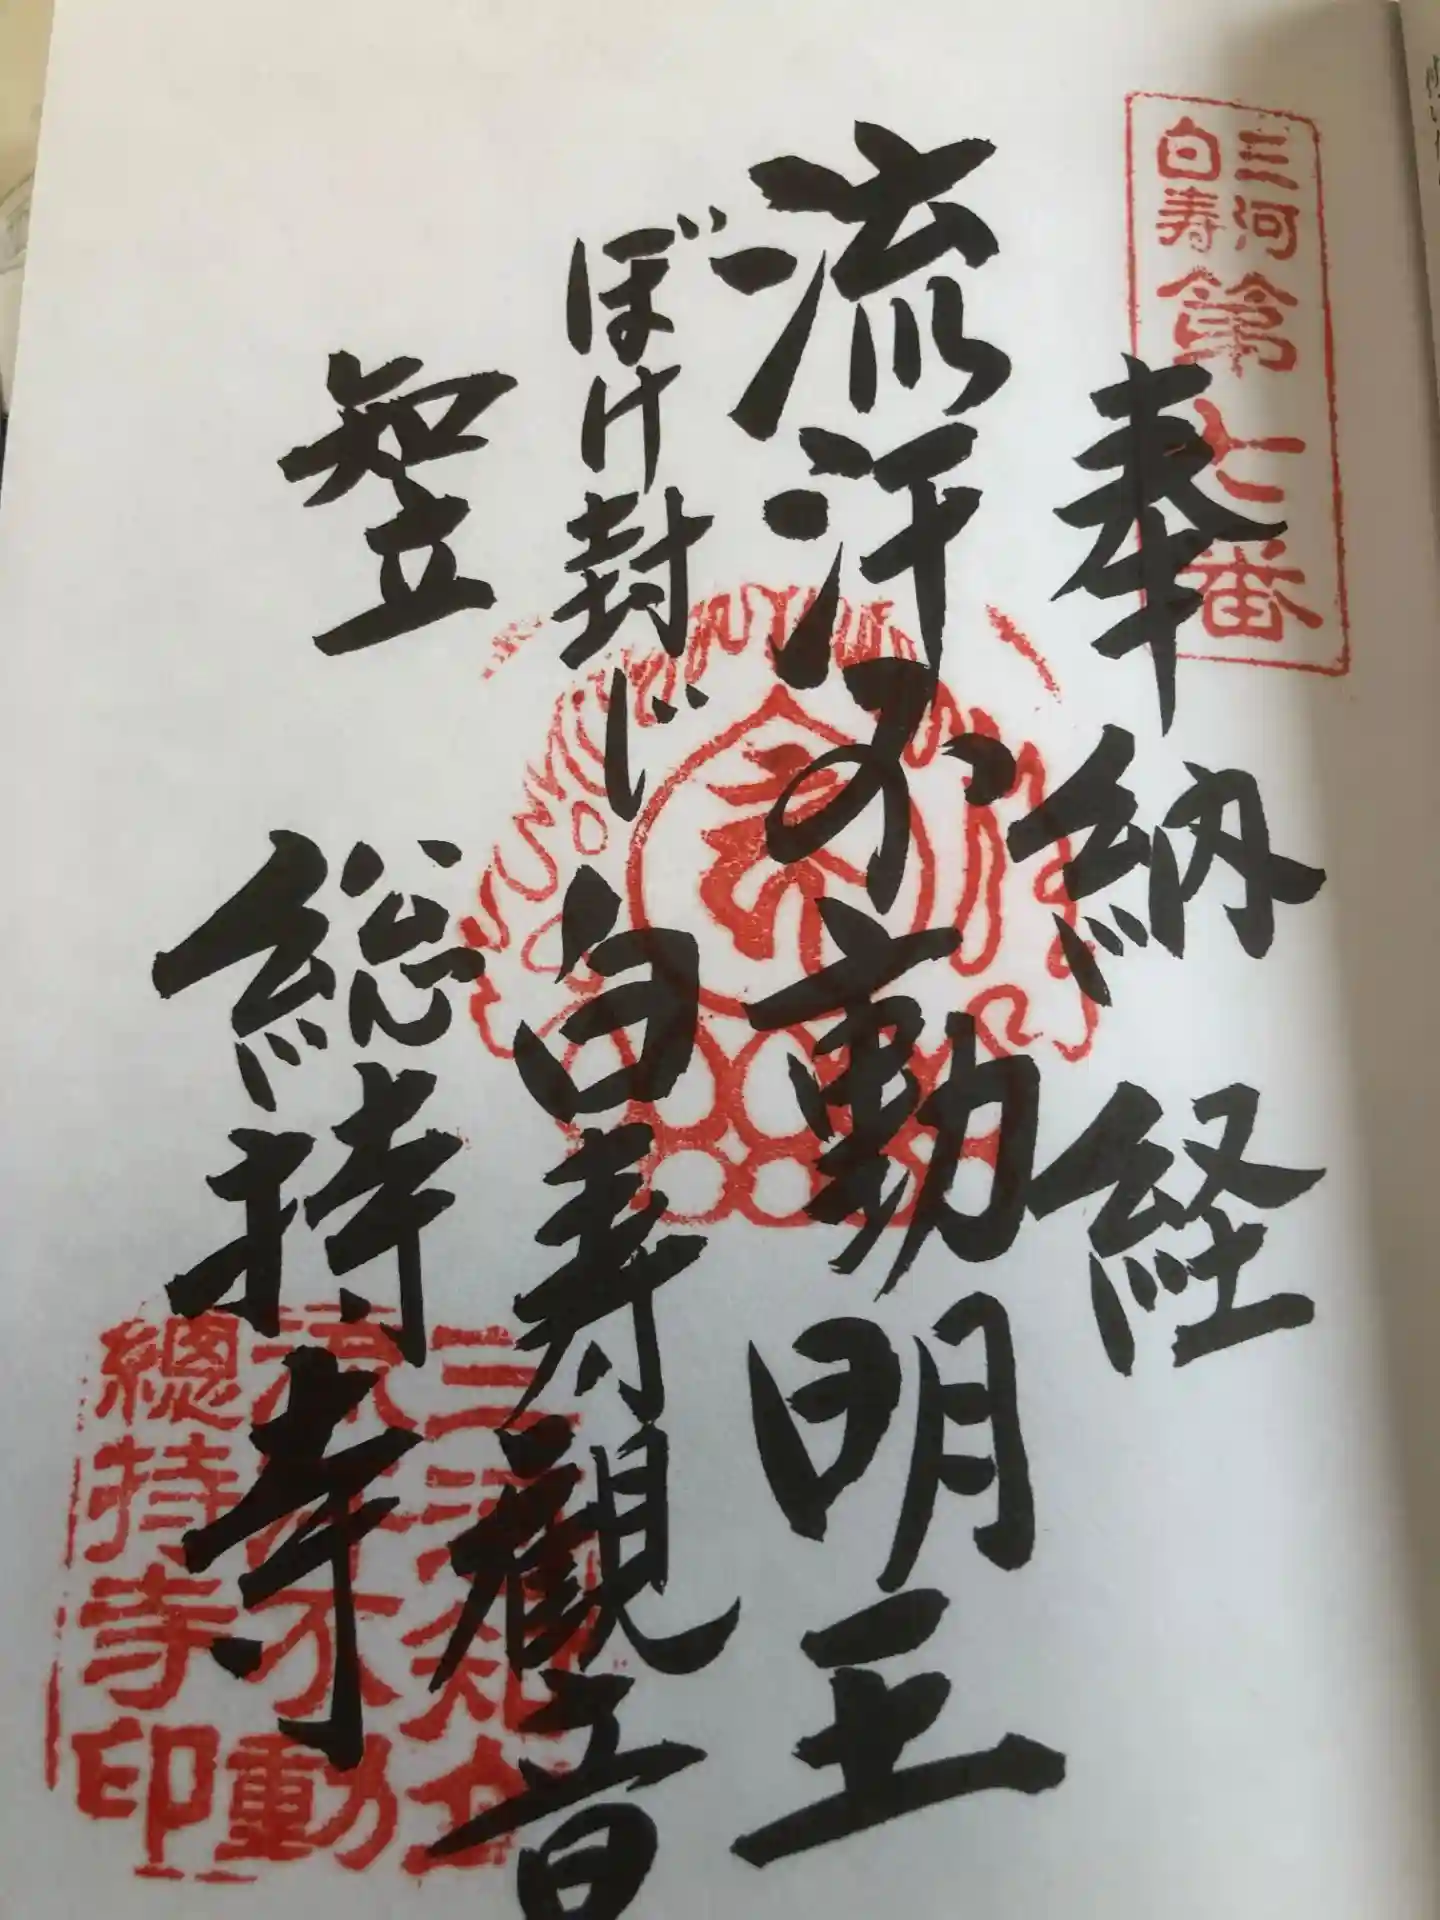 三河
白寿
第十二番
奉納経
流汗不動明王
ぼけ封じ
白寿観音
知立
総持寺
三河知立
流汗不動
總持寺印